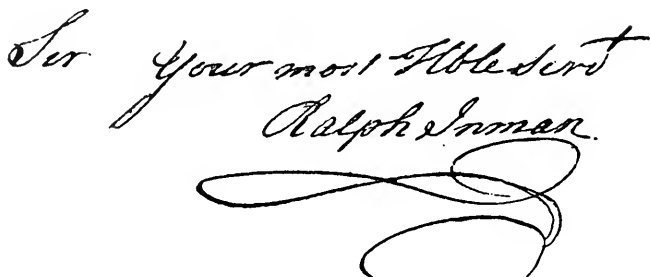 Sir Your most Hble Servt
Ralph Inman.